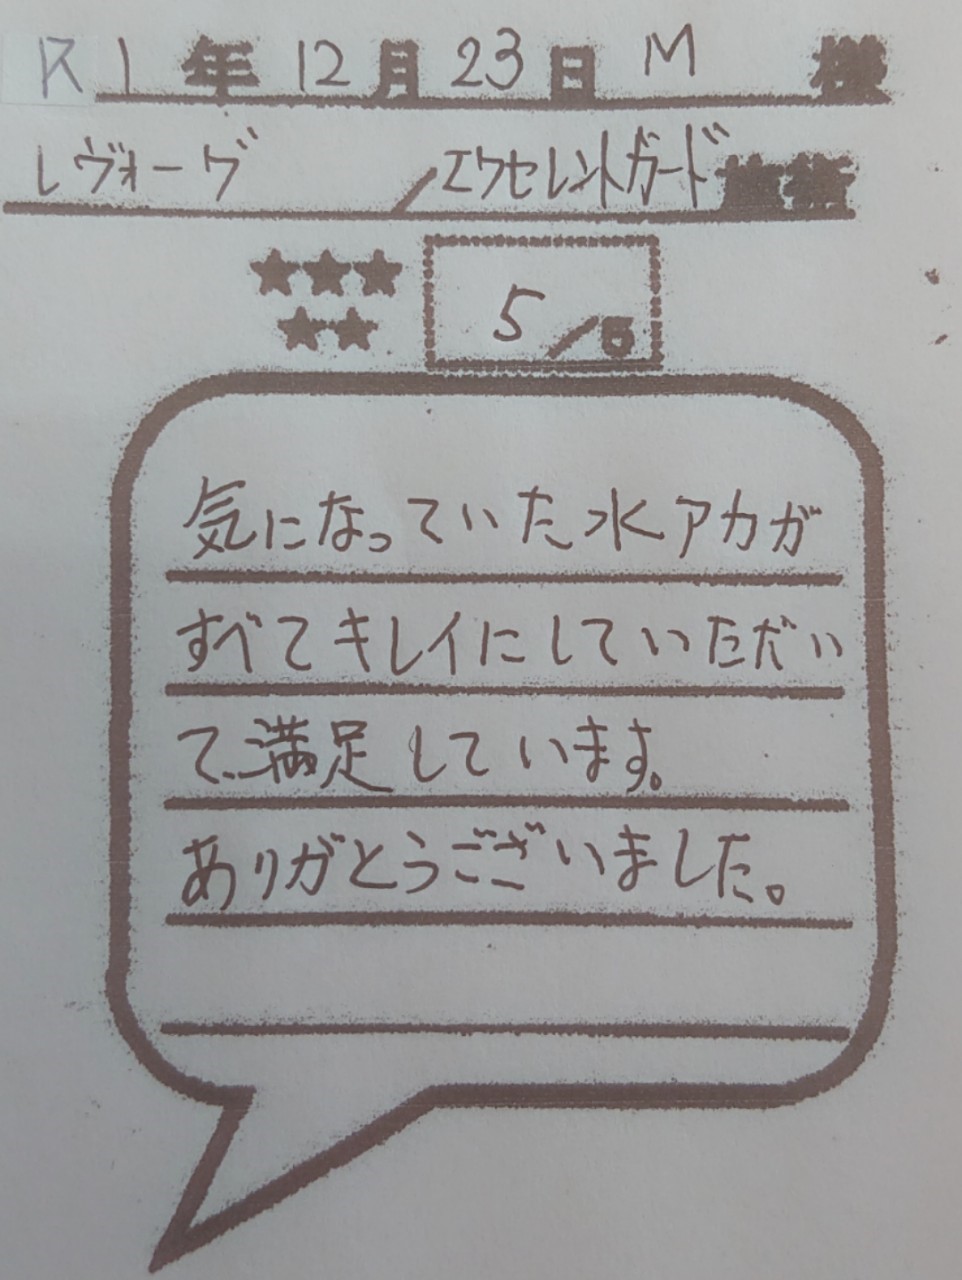 R1年12月23日 M 様
レヴォーグ/エクセレントガード施術
★★★
★★
5/5
気になっていた水アカが
すべてキレイにしていただい
て、満足しています。
ありがとうございました。